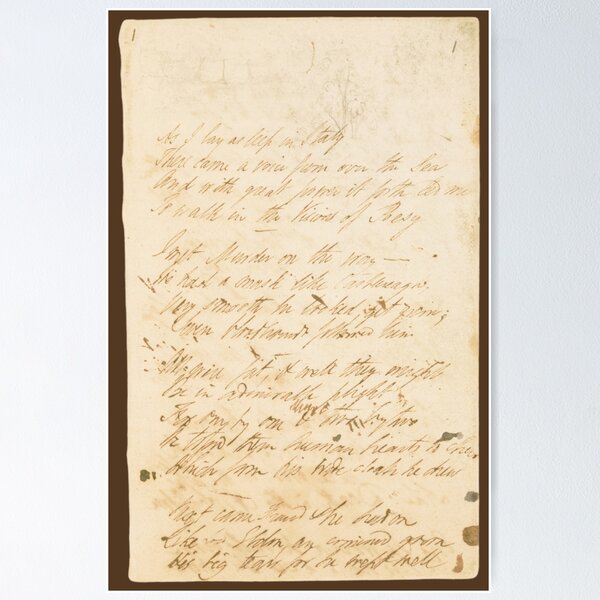 1 1
As I lay asleep in Italy
There came a voice from over the Sea
And with great power it forth led me
To walk in the Visions of Poesy
I met Murder on the way —
He had a mask like Castlereagh
Very smooth he looked, yet grim;
Seven bloodhounds followed him
All were fat, & well they might
be in admirable plight
For one by one & two by two
He tossed them human hearts to chew
Which from his wide cloak he drew
Next came Fraud & he had on
Like Eldon, an ermined gown
His big tears for he wept well